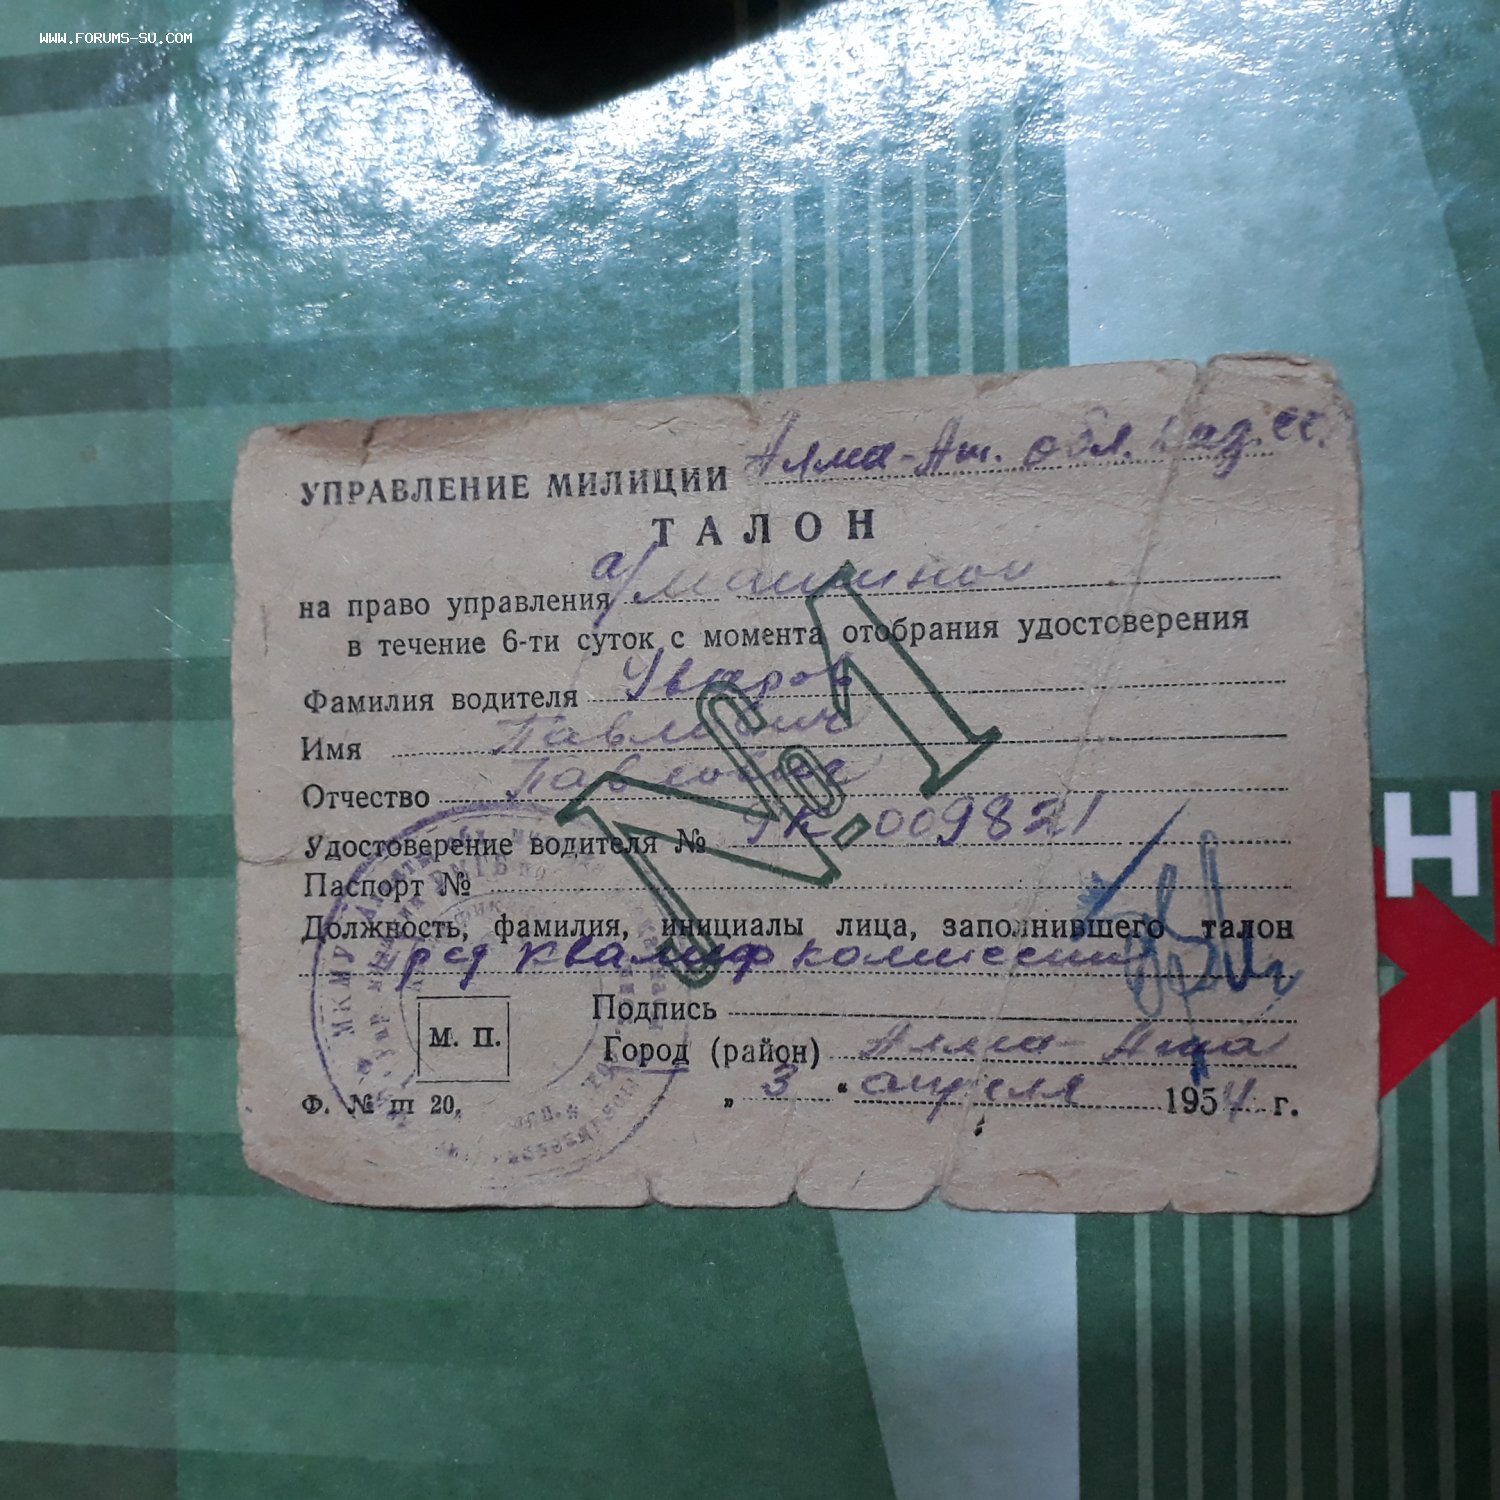 WWW.FORUMS-SU.COM
УПРАВЛЕНИЕ МИЛИЦИИ Алма-Ат. обл. Каз.ССР
ТАЛОН
на право управления а/машиной
в течение 6-ти суток с момента отобрания удостоверения
№1
Фамилия водителя Уваров
Имя Павлович
Отчество Павлович
Удостоверение водителя № ЯК 009821
Паспорт №
Должность, фамилия, инициалы лица, заполнившего талон
пред квалиф комиссии
М. П.
Подпись
Город (район) Алма-Ата
Ф. № III 20.
„ 3 “ апреля 1954 г.
Н